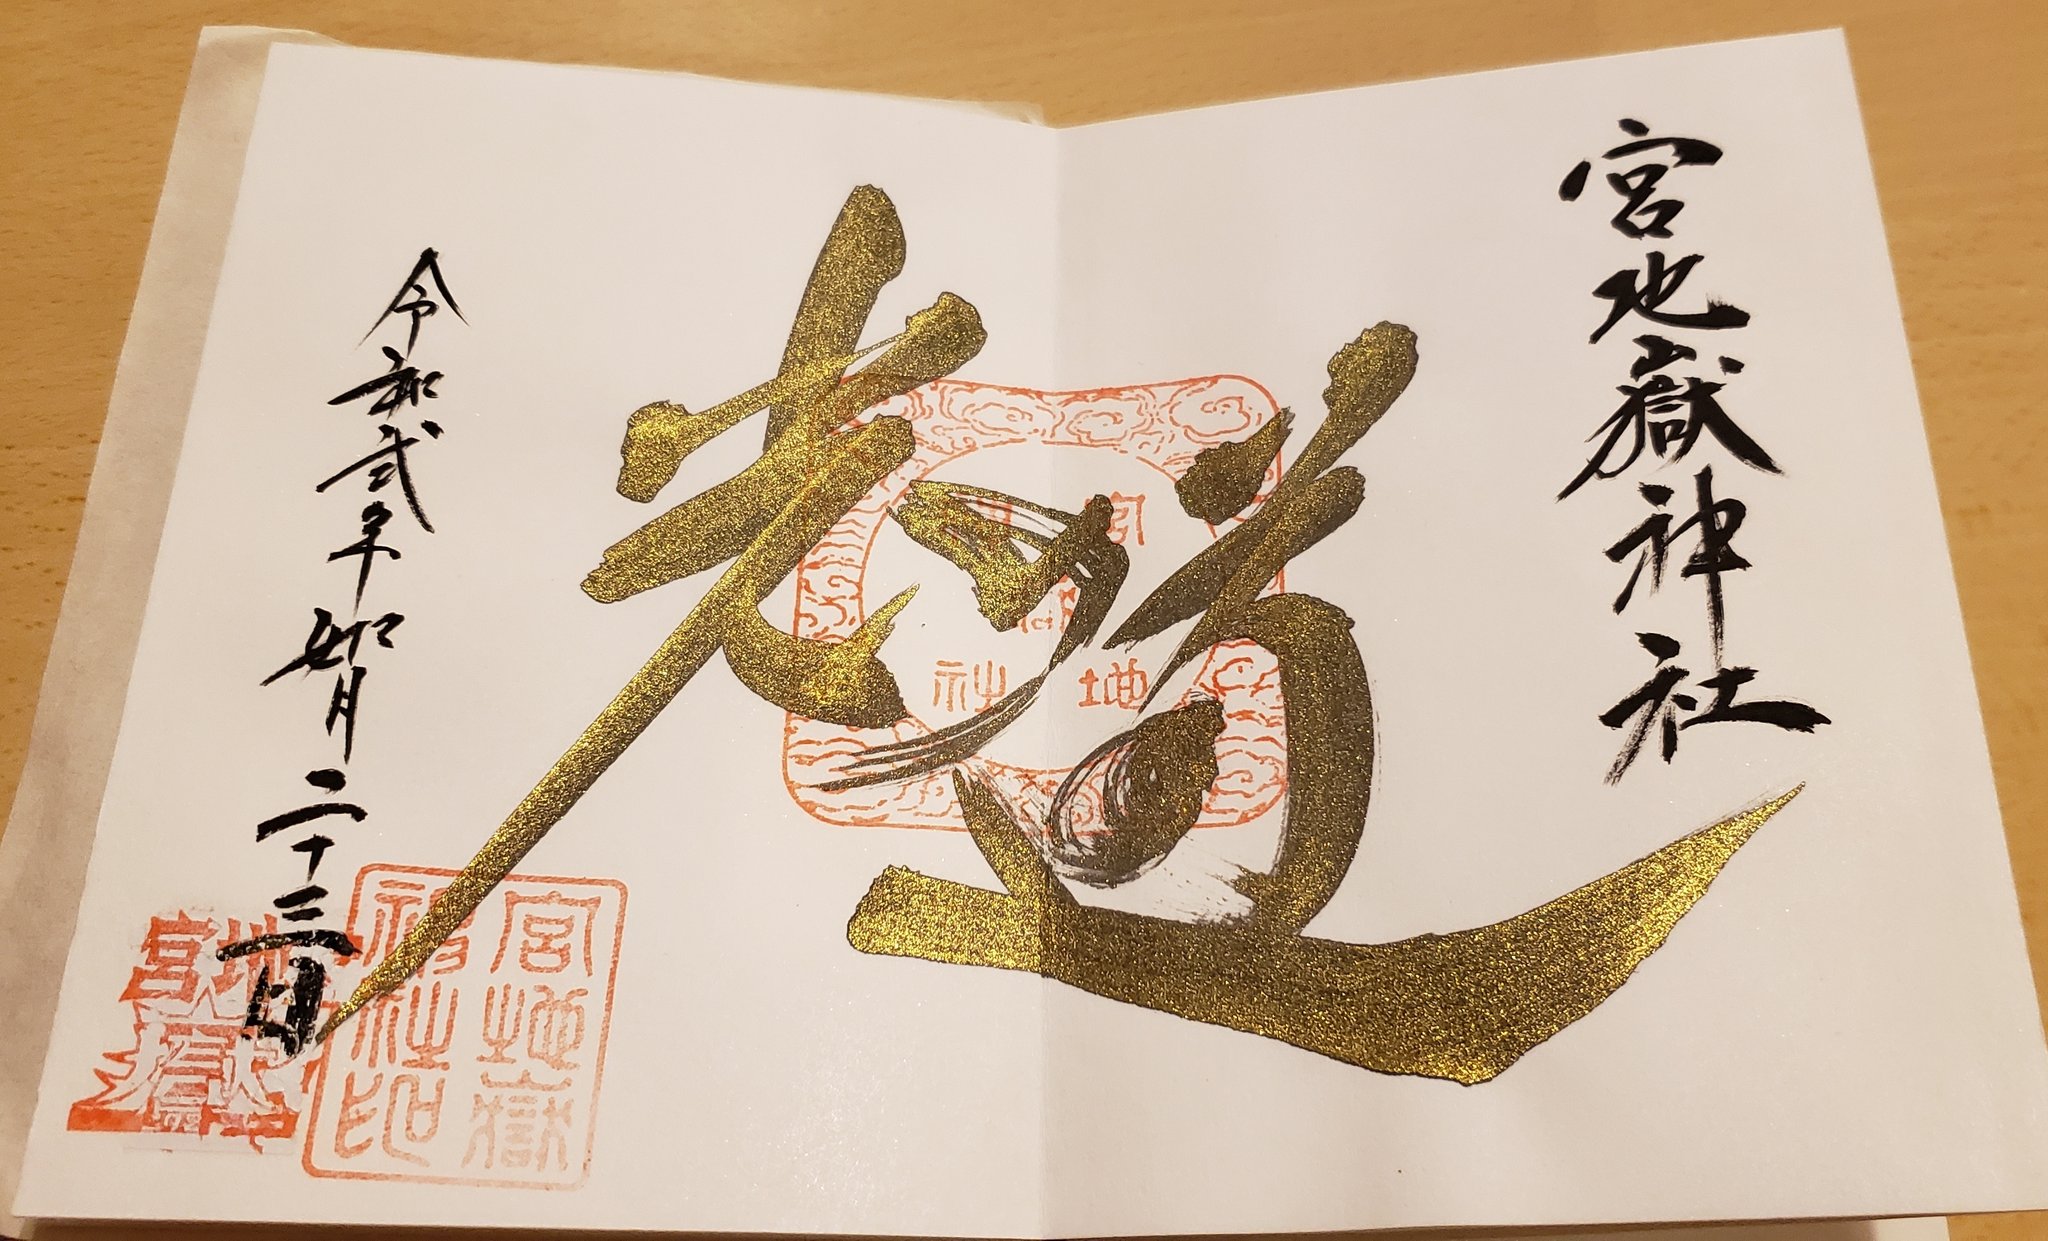 宮地嶽神社
光の道
令和弐年如月二十三日
宮地嶽
神社印
宮地嶽
地
社